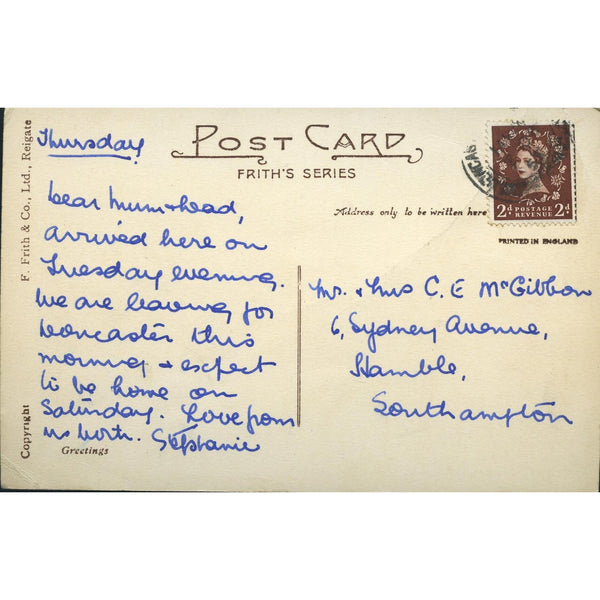 Thursday
POST CARD
FRITH'S SERIES
Address only to be written here
PRINTED IN ENGLAND
2d POSTAGE 2d
REVENUE
F. Frith & Co., Ltd., Reigate
Copyright
Dear Mum & Dad,
arrived here on
Tuesday evening.
We are leaving for
Doncaster this
morning & expect
to be home on
Saturday. Love from
us both. Stephanie
Greetings
Mr. & Mrs C. E McGibbon
6, Sydney Avenue,
Hamble,
Southampton